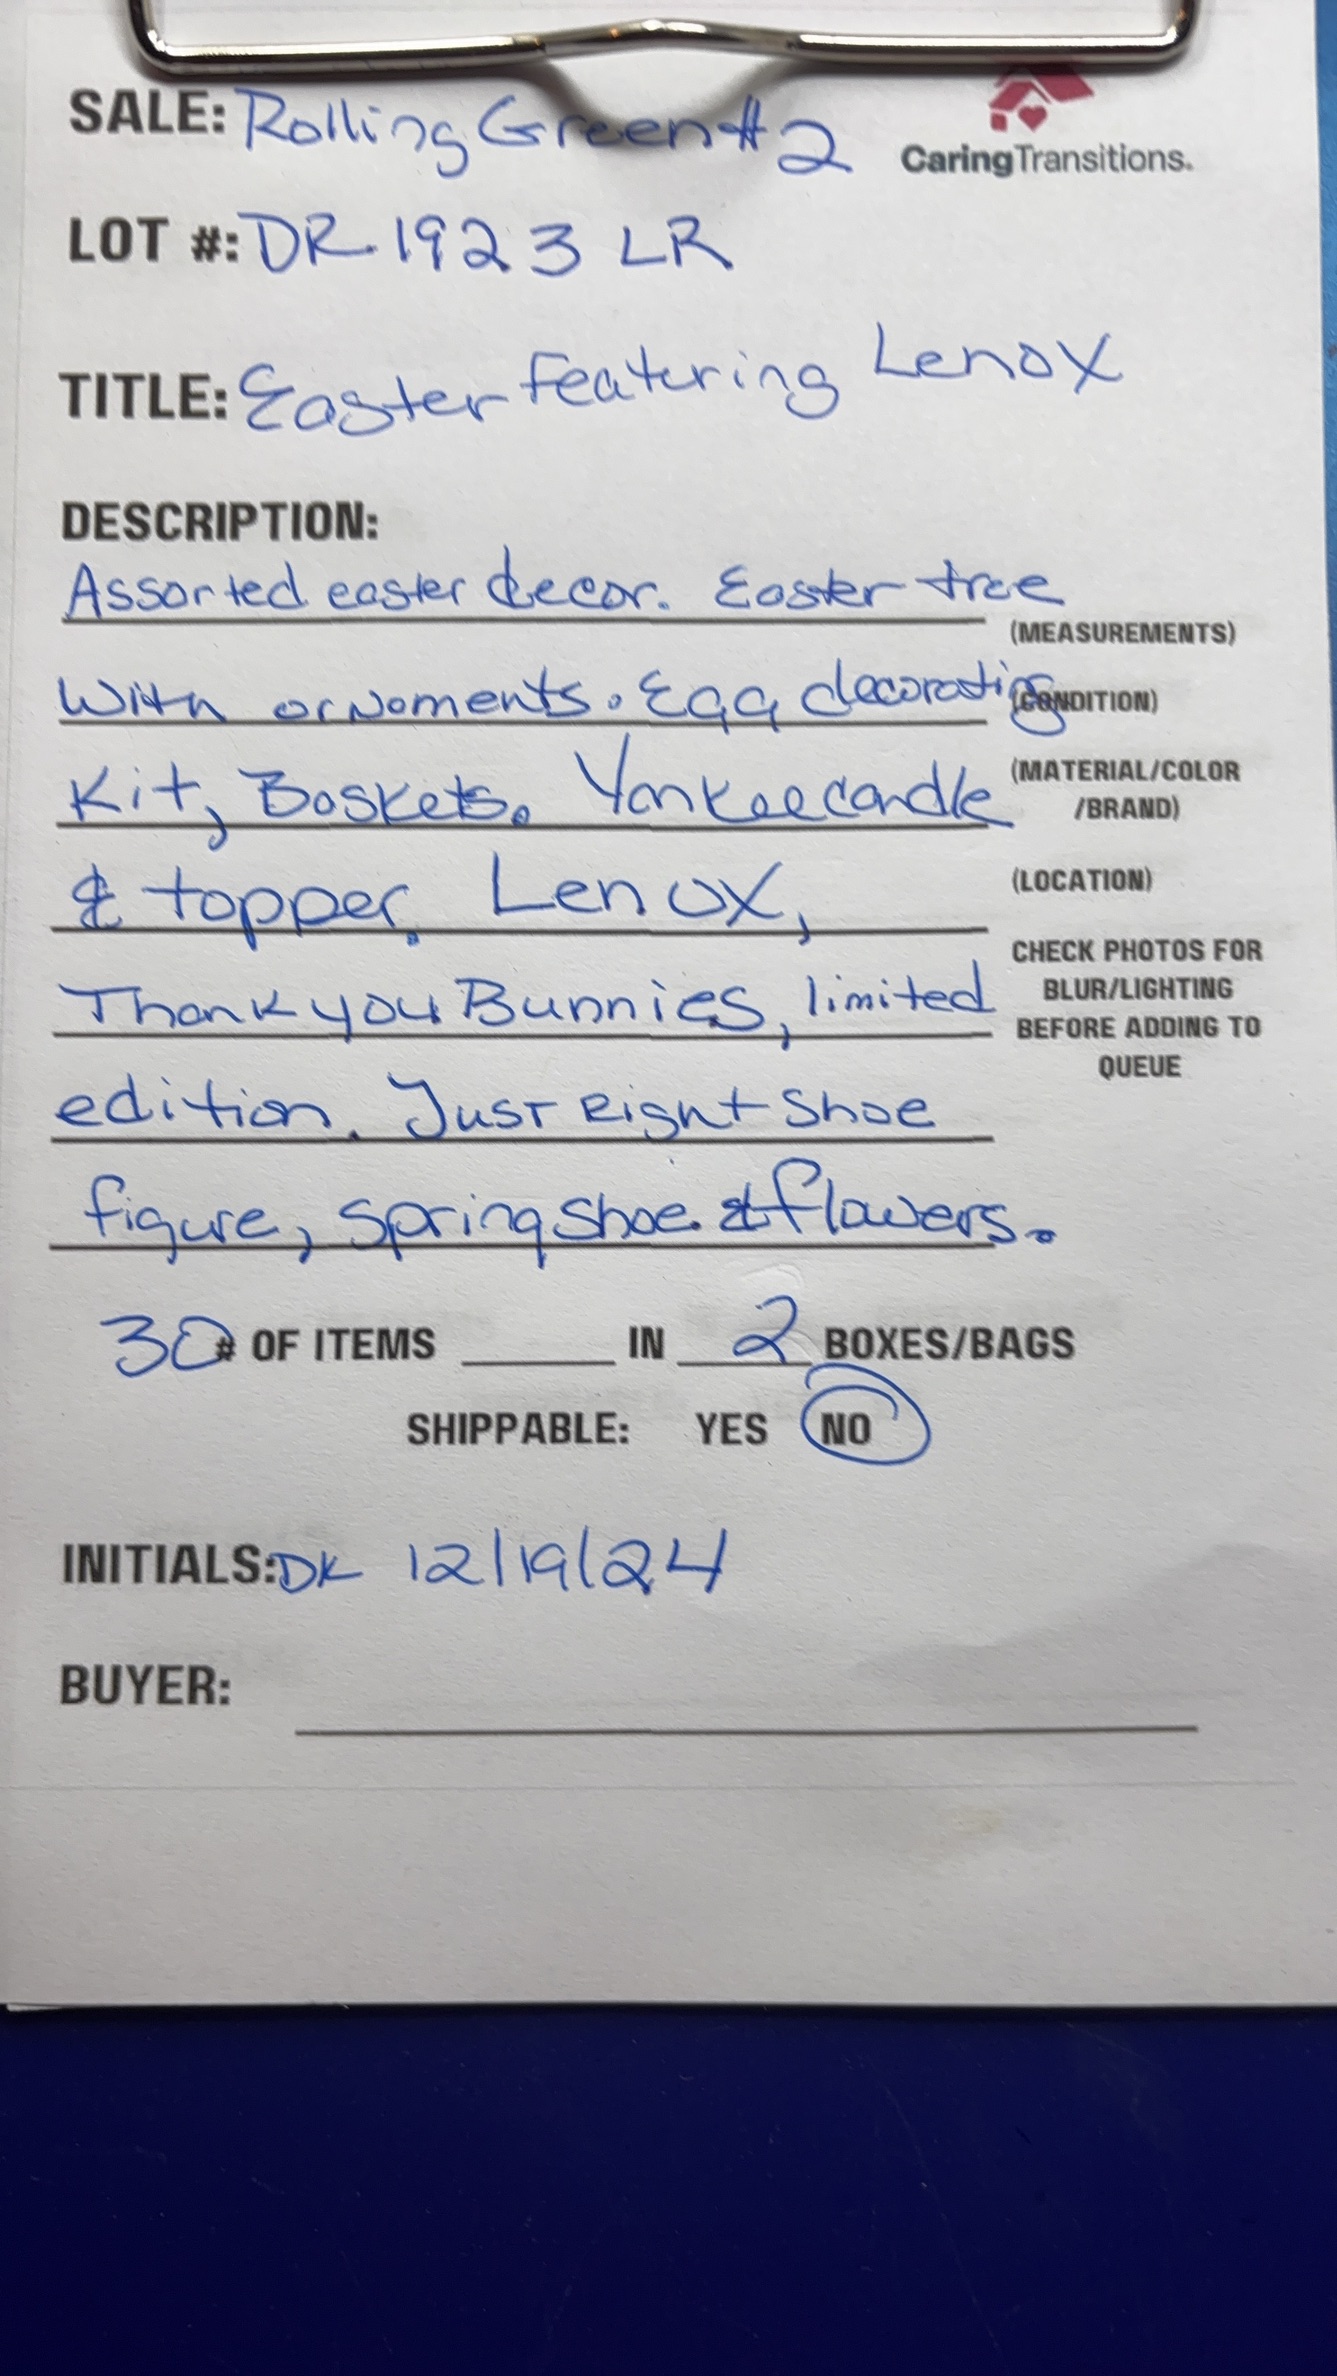 SALE: Rolling Green #2
CaringTransitions.
LOT #: DR 1923 LR
TITLE: Easter featuring Lenox
DESCRIPTION:
Assorted easter decor. Easter tree
(MEASUREMENTS)
With ornaments. Egg decorating
(CONDITION)
Kit, Baskets. Yankee candle
(MATERIAL/COLOR
/BRAND)
& topper. Lenox,
(LOCATION)
Thank you Bunnies, limited
CHECK PHOTOS FOR
BLUR/LIGHTING
BEFORE ADDING TO
QUEUE
edition. Just Right Shoe
figure, spring shoe & flowers.
30 # OF ITEMS IN 2 BOXES/BAGS
SHIPPABLE: YES NO
INITIALS: DK 12/19/24
BUYER: